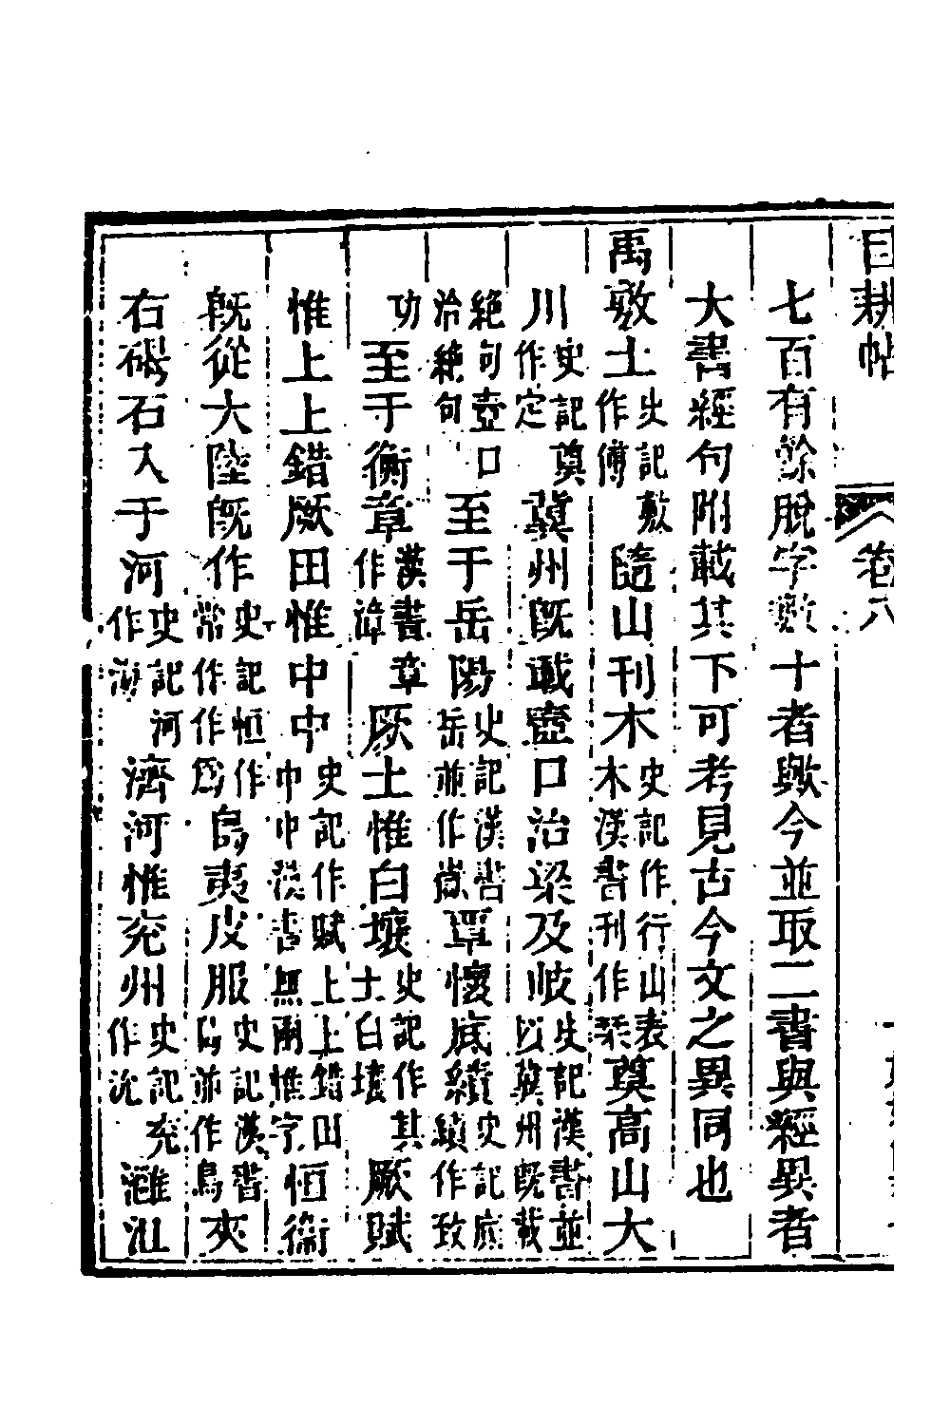 目耕帖　卷八
七百有餘脫字數十者歟今並取二書與經異者
大書經句附載其下可考見古今文之異同也
禹敷土史記敷作傅隨山刊木史記作行山表木漢書刊作栞奠高山大
川史記奠作定冀州既載壺口治梁及岐史記漢書並以冀州既載
絶句壺口治絶句至于岳陽史記漢書岳並作嶽覃懷底績史記底績作致
功至于衡章漢書章作漳厥土惟白壤史記作其土白壤厥賦
惟上上錯厥田惟中中史記作賦上上錯田中中漢書無兩惟字恒衞
既從大陸既作史記恒作常作作爲島夷皮服史記漢書島並作鳥夾
右碣石入于河史記河作海濟河惟兗州史記兗作沇灉沮